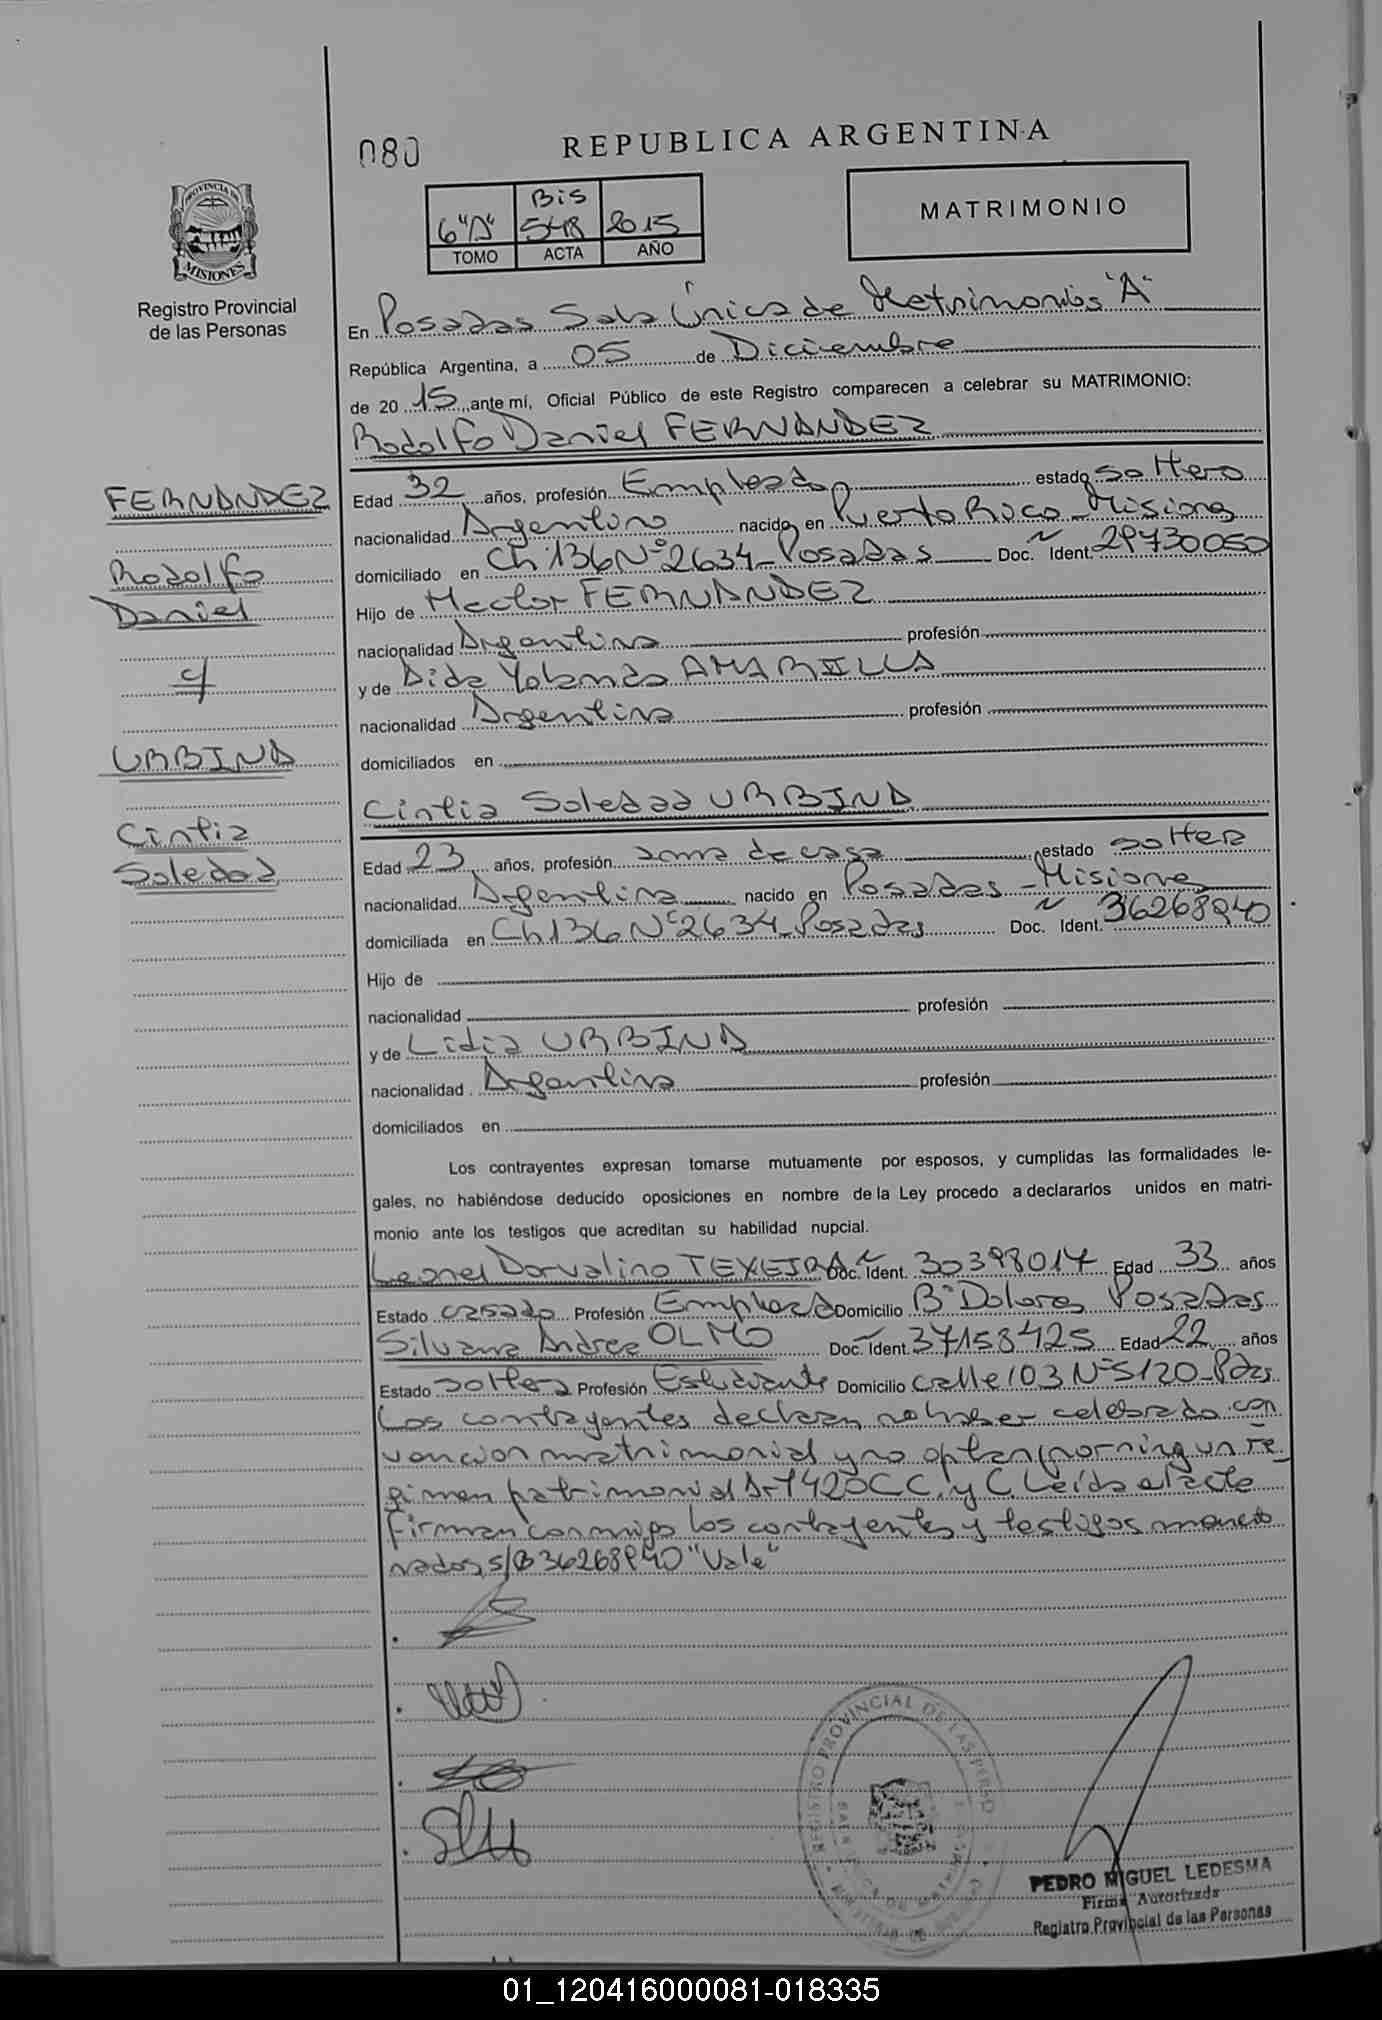 080
REPUBLICA ARGENTINA
PROVINCIA DE
MISIONES
Registro Provincial
de las Personas
Bis
6 "A" 548 2015
TOMO ACTA AÑO
MATRIMONIO
En Posadas Sala Única de Matrimonios "A"
República Argentina, a 05 de Diciembre
de 2015 ante mí, Oficial Público de este Registro comparecen a celebrar su MATRIMONIO:
Rodolfo Daniel FERNANDEZ
FERNANDEZ
Rodolfo
Daniel
c/
URBINA
Cintia
Soledad
Edad 32 años, profesión Empleado estado soltero
nacionalidad Argentino nacido en Puerto Rico - Misiones
domiciliado en Ch 136 Nº 2634 - Posadas Doc. Ident. 29730050
Hijo de Hector FERNANDEZ
nacionalidad Argentina profesión
y de Aida Yolanda AMARILLA
nacionalidad Argentina profesión
domiciliados en
Cintia Soledad URBINA
Edad 23 años, profesión ama de casa estado soltera
nacionalidad Argentina nacido en Posadas - Misiones
domiciliada en Ch 136 Nº 2634 - Posadas Doc. Ident. 36268940
Hijo de
nacionalidad profesión
y de Lidia URBINA
nacionalidad Argentina profesión
domiciliados en
Los contrayentes expresan tomarse mutuamente por esposos, y cumplidas las formalidades le-
gales, no habiéndose deducido oposiciones en nombre de la Ley procedo a declararlos unidos en matri-
monio ante los testigos que acreditan su habilidad nupcial.
Leonel Dorvalino TEXEIRA Doc. Ident. 30398017 Edad 33 años
Estado casado Profesión Empleado Domicilio Bº Dolores Posadas
Silvana Andrea OLMO Doc. Ident. 37158425 Edad 22 años
Estado soltera Profesión Estudiante Domicilio calle 103 Nº 5120 - Pdas
Los contrayentes declaran no haber celebrado con
vencion matrimonial y no optan por ningun re
gimen patrimonial Ar 420 C C. y C. Leída el acta
firman conmigo los contrayentes y testigos mencio
nados, s/B 36268940 "Vale"
REGISTRO PROVINCIAL DE LAS PERSO
PEDRO MIGUEL LEDESMA
Firma Autorizada
Registro Provincial de las Personas
01_120416000081-018335